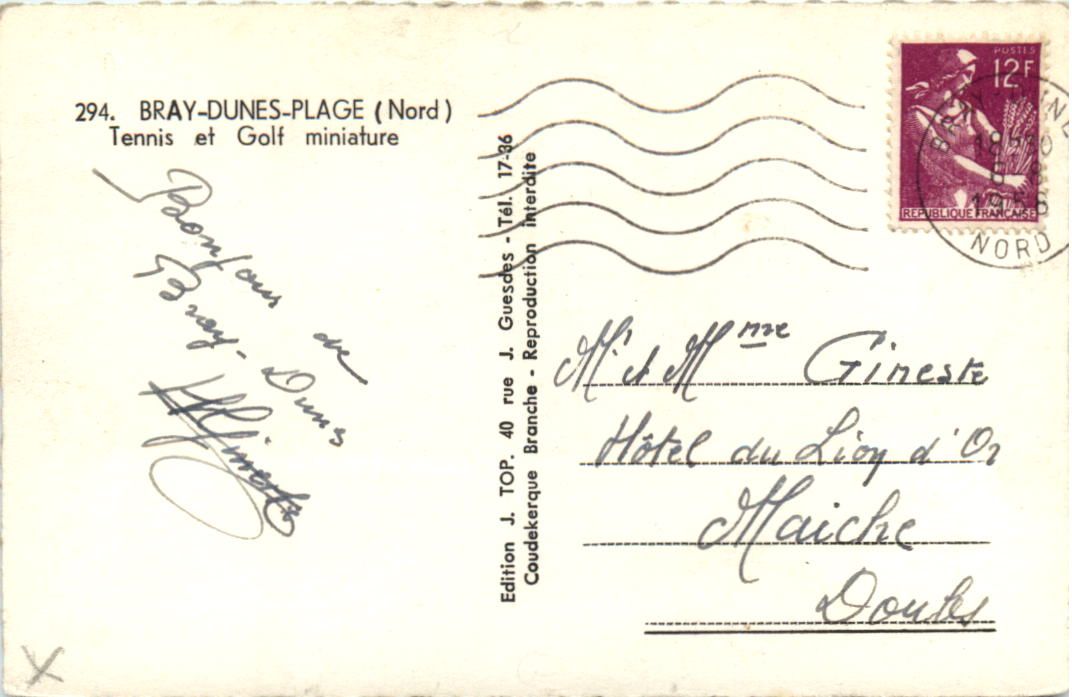 294. BRAY-DUNES-PLAGE (Nord)
Tennis et Golf miniature
Bonjour de
Bray-Dunes
Edition J. TOP. 40 rue J. Guesdes - Tél. 17-36
Coudekerque Branche - Reproduction interdite
POSTES
12F
REPUBLIQUE FRANCAISE
BRAY DUNES
18H30
8
1958
NORD
Mr et Mme Gineste
Hôtel du Lion d'Or
Maiche
Doubs
X